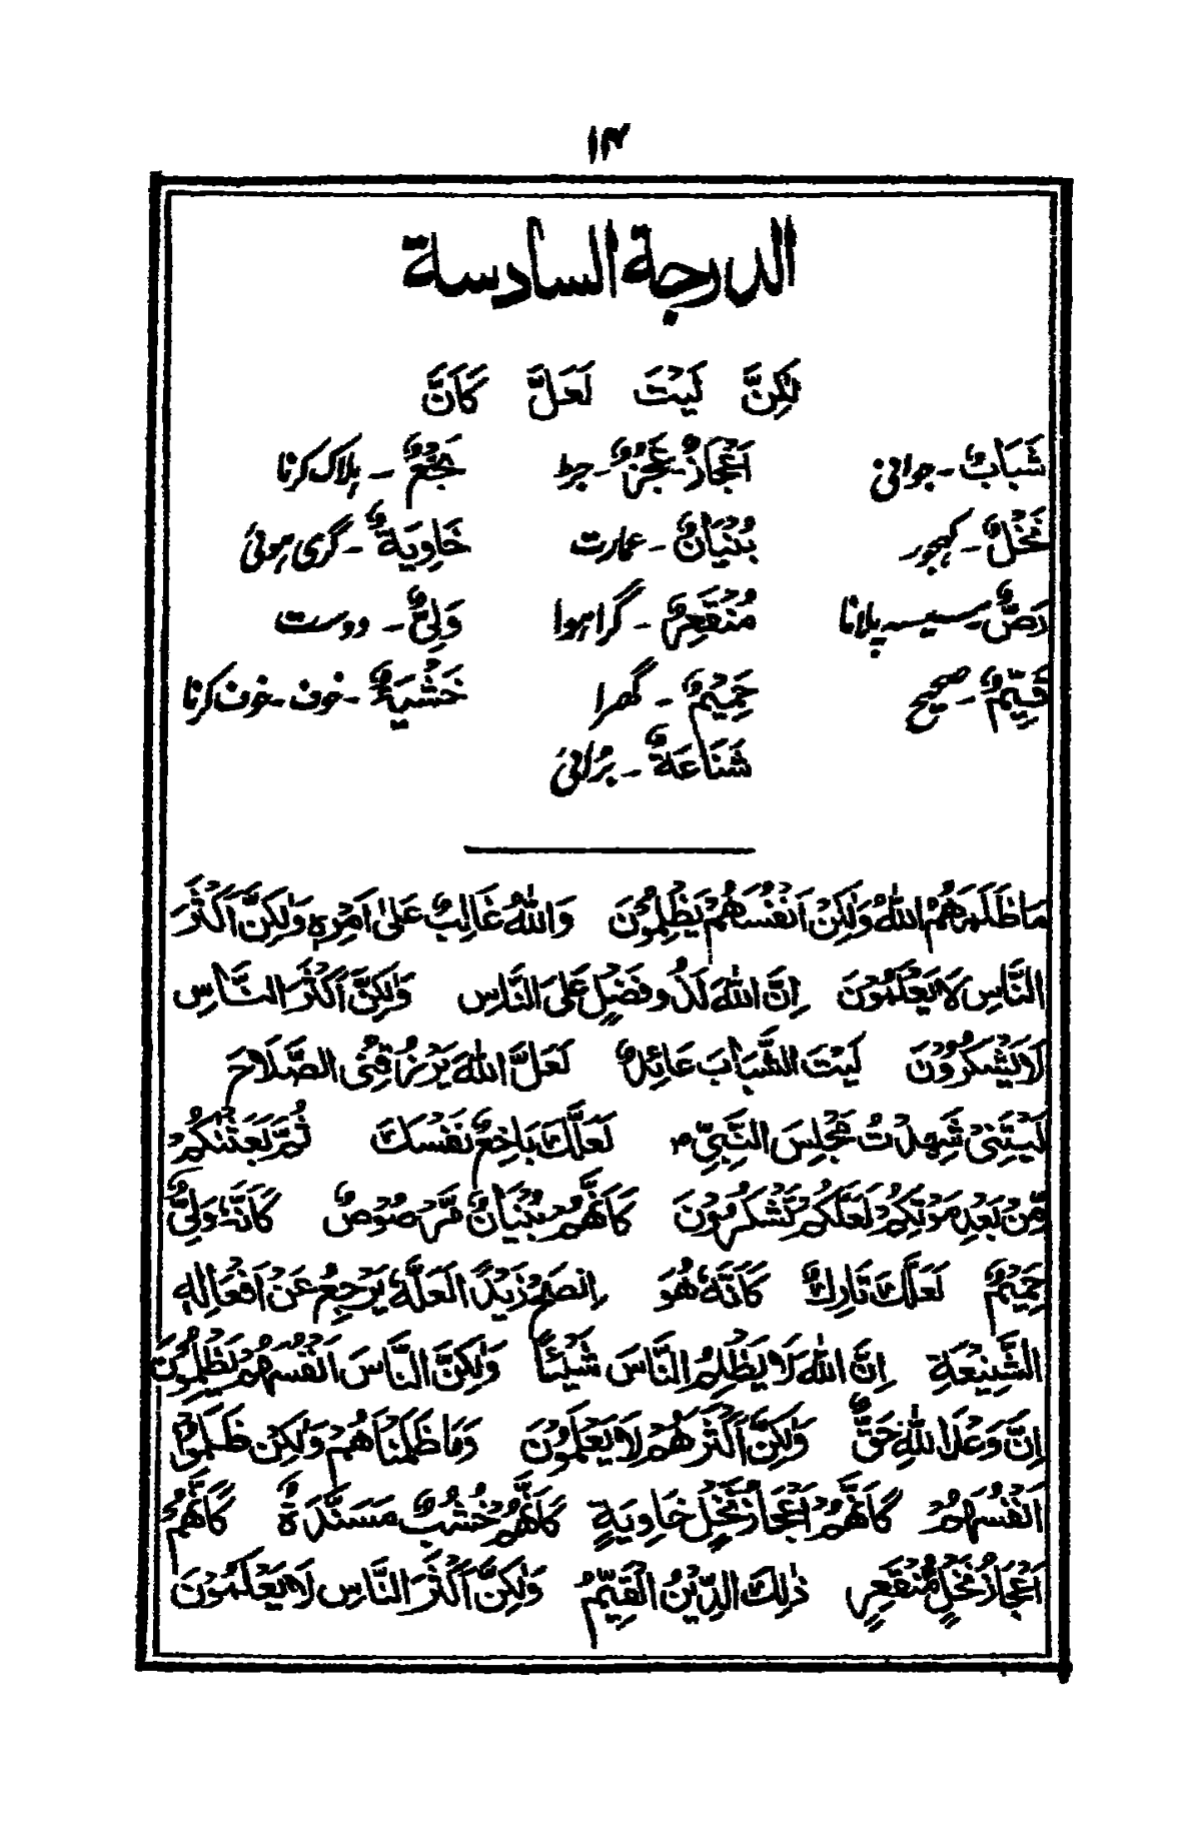 ۱۴
الدرجة السادسة
لٰكِنَّ لَيْتَ لَعَلَّ كَاَنَّ
شَبَابٌ - جوانی اَعْجَازٌ عَجُزٌ - جڑ بَخْعٌ - ہلاک کرنا
نَخْلٌ - کھجور بُنْيَانٌ - عمارت خَاوِيَةٌ - گری ہوئی
رَصٌّ - سیسہ پلانا مُنْقَعِرٌ - گرا ہوا وَلِيٌّ - دوست
قَيِّمٌ - صحیح حَمِيْمٌ - گہرا خَشْيَةٌ - خوف - خوف کرنا
شَنَاعَةٌ - برائی
مَا ظَلَمَهُمُ اللّٰهُ وَلٰكِنْ اَنْفُسَهُمْ يَظْلِمُوْنَ وَاللّٰهُ غَالِبٌ عَلٰى اَمْرِهٖ وَلٰكِنَّ اَكْثَرَ
النَّاسِ لَا يَعْلَمُوْنَ اِنَّ اللّٰهَ لَذُوْ فَضْلٍ عَلَى النَّاسِ وَلٰكِنَّ اَكْثَرَ النَّاسِ
لَا يَشْكُرُوْنَ لَيْتَ الشَّبَابَ عَائِدٌ لَعَلَّ اللّٰهَ يَرْزُقُنِى الصَّلَاحَ
لَيْتَنِىْ شَهِدْتُ مَجْلِسَ النَّبِيِّ ؐ لَعَلَّكَ بَاخِعٌ نَفْسَكَ ثُمَّ بَعَثْنٰكُمْ
مِّنْ بَعْدِ مَوْتِكُمْ لَعَلَّكُمْ تَشْكُرُوْنَ كَاَنَّهُمْ بُنْيَانٌ مَّرْصُوْصٌ كَاَنَّهٗ وَلِيٌّ
حَمِيْمٌ لَعَلَّكَ تَارِكٌ كَاَنَّهٗ هُوَ اِنْصَحْ زَيْدًا لَعَلَّهٗ يَرْجِعُ عَنْ اَفْعَالِهِ
الشَّنِيْعَةِ اِنَّ اللّٰهَ لَا يَظْلِمُ النَّاسَ شَيْئًا وَلٰكِنَّ النَّاسَ اَنْفُسَهُمْ يَظْلِمُوْنَ
اِنَّ وَعْدَ اللّٰهِ حَقٌّ وَلٰكِنَّ اَكْثَرَهُمْ لَا يَعْلَمُوْنَ وَمَا ظَلَمْنَاهُمْ وَلٰكِنْ ظَلَمُوْا
اَنْفُسَهُمْ كَاَنَّهُمْ اَعْجَازُ نَخْلٍ خَاوِيَةٍ كَاَنَّهُمْ خُشُبٌ مُسَنَّدَةٌ كَاَنَّهُمْ
اَعْجَازُ نَخْلٍ مُّنْقَعِرٍ ذٰلِكَ الدِّيْنُ الْقَيِّمُ وَلٰكِنَّ اَكْثَرَ النَّاسِ لَا يَعْلَمُوْنَ